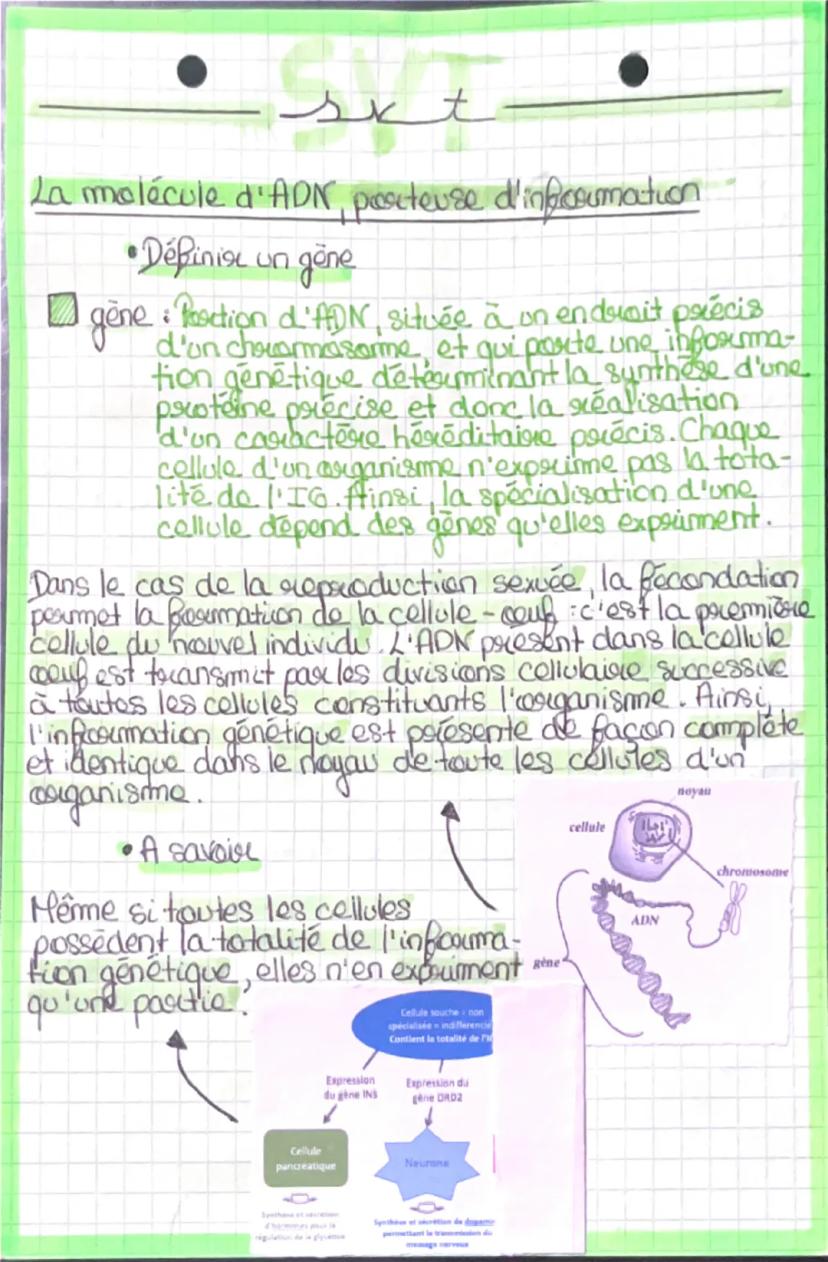 SVT
svt
La molécule d'ADN, porteuse d'information
• Définir un gène
gène : Portion d'ADN, située à un endroit précis
d'un chromosome, et qui porte une informa-
tion génétique déterminant la synthèse d'une
protéine précise et donc la réalisation
d'un caractère héréditaire précis. Chaque
cellule d'un organisme n'exprime pas la tota-
lité de l'IG. Ainsi, la spécialisation d'une
cellule dépend des gènes qu'elles expriment.
Dans le cas de la reproduction sexuée, la fécondation
permet la formation de la cellule-œuf : c'est la première
cellule du nouvel individu. L'ADN présent dans la cellule
œuf est transmit par les divisions cellulaire successive
à toutes les cellules constituants l'organisme. Ainsi,
l'information génétique est présente de façon complète
et identique dans le noyau de toute les cellules d'un
organisme.
noyau
cellule
chromosome
ADN
gène
• A savoir
Même si toutes les cellules
possèdent la totalité de l'informa-
tion génétique, elles n'en expriment
qu'une partie.
Cellule souche = non
spécialisée = indifférencié
Contient la totalité de l'I
Expression
du gène INS
Expression du
gène DRD2
Cellule
pancréatique
Neurone
Synthèse et sécrétion
d'hormones pour la
régulation de la glycémie
Synthèse et sécrétion de dopamin
permettant la transmission du
message nerveux